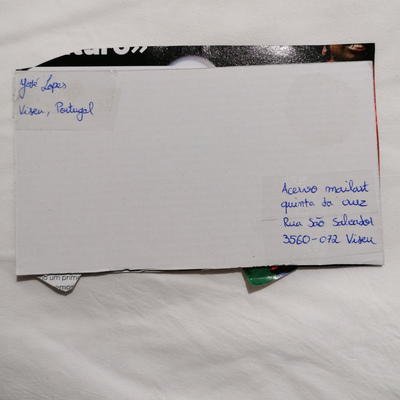 uturo»
José Lopes
Viseu, Portugal
Acervo mailart
quinta da cruz
Rua São Salvador
3560-072 Viseu
o um prim